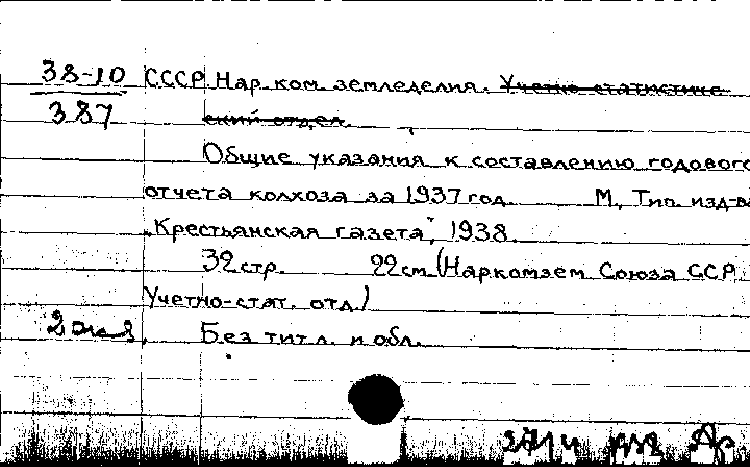 38-10 СССР. Нар. ком. земледелия. Учетно-статистиче
387 ский отдел.
Общие указания к составлению годового
отчета колхоза за 1937 год. М., Тип. изд-ва
„Крестьянская газета", 1938.
32 стр. 22 см. (Наркомзем Союза ССР.
Учетно-стат. отд.)
2 экз. Без тит. л. и обл.